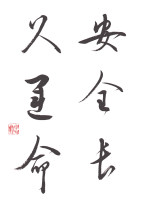 安全长
久運命